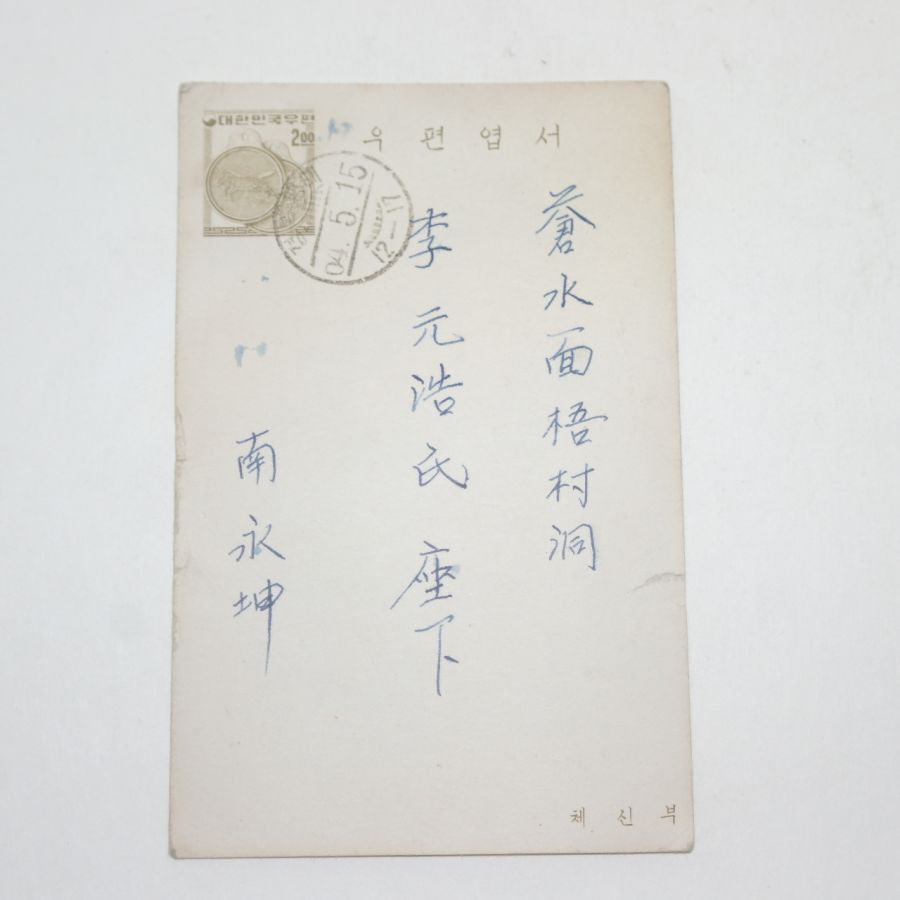 대한민국우편
2.00
우편엽서
04.5.15
12-17
蒼水面梧村洞
李元浩氏 座下
南永坤
체신부